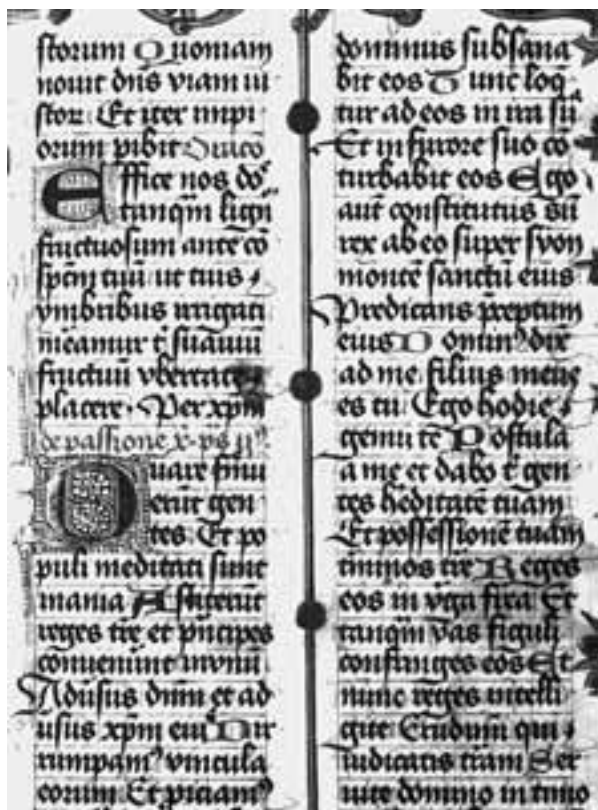 storum Quoniam
nouit dns viam iu
stor. Et iter impi
orum pibit
Effice nos do
tanqm ligni
fructuosum ante co
spctu tuu ut tuis
ymbribus irrigati
mereamur t suauiu
fructuu vbertate
placere. Per xpm
de passione x. ps ij
Quare fremu
erut gen
tes. Et po
puli meditati sunt
inania Astiterut
reges tre et pncipes
conuenerunt in vnu
Aduersus dnm et ad
uersus xpm eius Dir
rumpam9 vincula
eorum. Et piciam9
dominus subsana
bit eos Tunc loq
tur ad eos in ira su
Et in furore suo co
turbabit eos Ego
aut constitutus su
rex ab eo super syon
monte sanctu eius
Predicans preceptum
eius Domin9 dix
ad me. filius meus
es tu. Ego hodie
genui te Postula
a me et dabo t gen
tes heditate tuam
Et possessione tuam
tminos tre Reges
eos in vga frea Et
tanqm vas figuli
confringes eos Et
nunc reges intelli
gite. Erudimi qui
iudicatis tram Ser
uite domino in timo